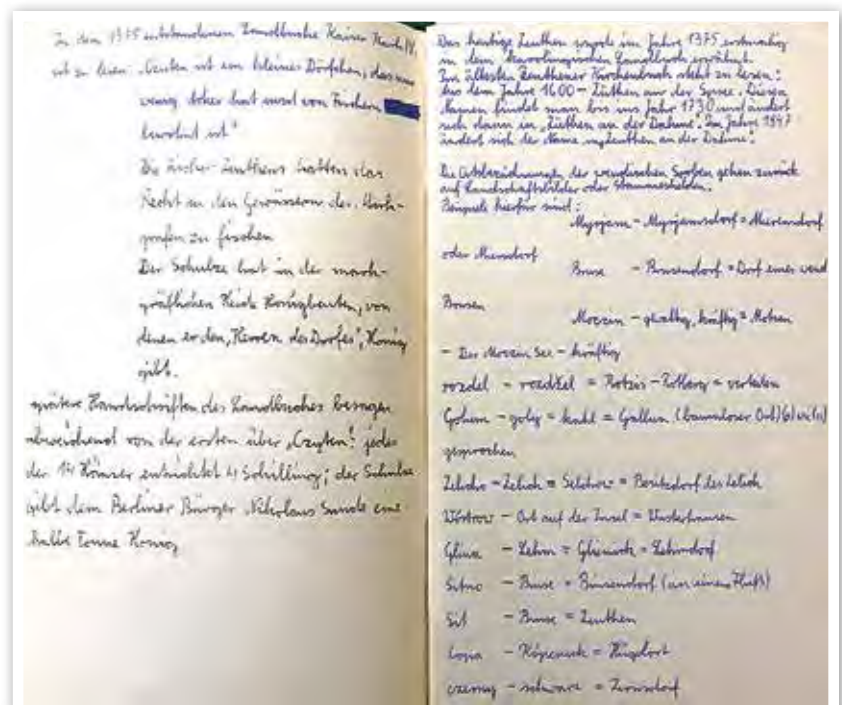 In dem 1375 entstandenen Landbuche Kaiser Karls IV.
ist zu lesen: „Czuten ist ein kleines Dörfchen, das nur
wenig Acker hat und von Fischern
bewohnt ist“
Die Fischer Zeuthens hatten das
Recht in den Gewässern des Mark-
grafen zu fischen
Der Schulze hat in der mark-
gräflichen Heide Honigbeuten, von
denen er den „Herren des Dorfes“, Honig
gibt.
spätere Handschriften des Landbuches besagen
abweichend von der ersten über „Czyten“: jedes
der 14 Häuser entrichtet 4 Schilling; der Schulze
gibt dem Berliner Bürger Nikolaus Sunde eine
halbe Tonne Honig
Das heutige Zeuthen wurde im Jahre 1375 erstmalig
in dem Karolingischen Landbuch erwähnt.
Im ältesten Zeuthener Kirchenbuch steht zu lesen:
Aus dem Jahre 1600 – Züthen an der Spree. Diesen
Namen findet man bis ins Jahr 1730 und ändert
sich dann in „Züthen an der Dahme“. Im Jahre 1847
ändert sich der Name in „Zeuthen an der Dahme“.
Die Ortsbezeichnungen der wendischen Sorben gehen zurück
auf Landschaftsbilder oder Stammeshelden.
Beispiele hierfür sind:
Myrjam – Myrjamsdorf = Mierendorf
oder Miersdorf
Buse – Busendorf = Dorf eines wend
Busen
Moczin – gewaltig, kräftig = Motzen
– Der Moczin See – kräftig
rozdel – = Rotzis – = verteilen
Gohlen – goly = kahl = Gallun (baumloser Ort)
gesprochen
Zelicho – Zelich = Selchow = Besitzdorf des Zelich
Wostrow – Ort auf der Insel = Wusterhausen
Glina – Lehm = Glienick = Lehmdorf
Sitno – Binse = Binsendorf (an einem Fließ)
Sit – Binse = Zeuthen
– Köpenick = Hügelort
czerny – schwarz = Zernsdorf